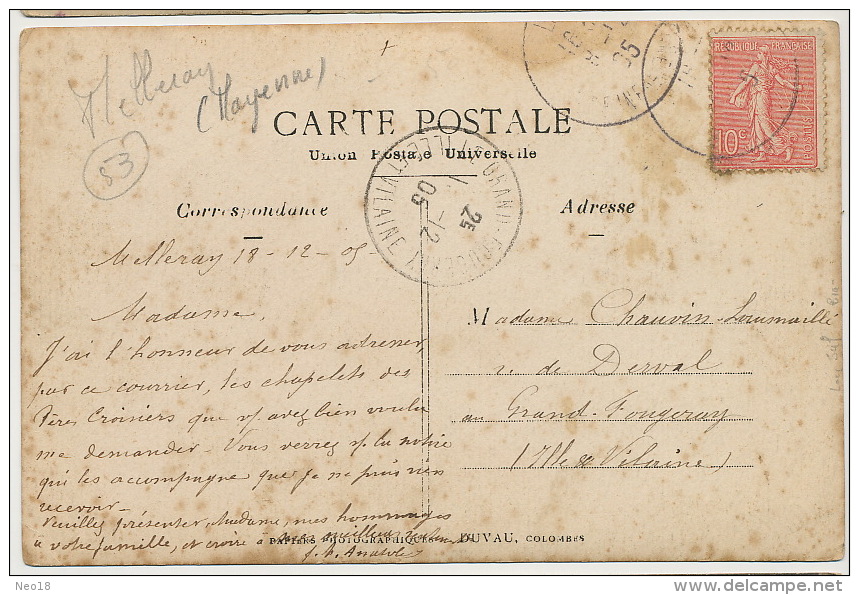 Melleray
(Mayenne)
53
CARTE POSTALE
Union Postale Universelle
RÉPUBLIQUE FRANÇAISE
10c
POSTES
GRAND-FOUGERAY
ILLE-ET-VILAINE
25 -12
05
Correspondance
Adresse
Melleray 18-12-05-
Madame,
J'ai l'honneur de vous adresser,
par ce courrier, les chapelets des
Pères Croisiers que v/ avez bien voulu
me demander - Vous verrez s/ la notice
qui les accompagne que je ne puis rien
recevoir -
Veuillez présenter, Madame, mes hommages
à votre famille, et croire à mes meilleurs
f. M. Anatole
Madame Chauvin-Loumaillé
r. de Derval
au Grand-Fougeray
(Ille & Vilaine)
PAPIERS PHOTOGRAPHIQUES DUVAU, COLOMBES
Neo18
delcampe.net